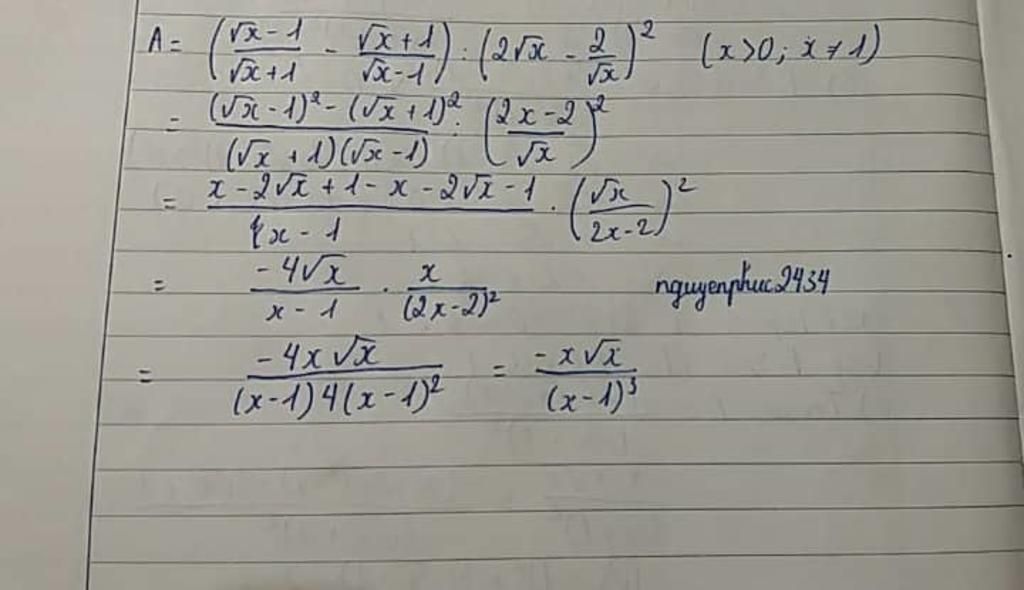 A = ((√x - 1)/(√x + 1) - (√x + 1)/(√x - 1)) : (2√x - 2/√x)² (x > 0; x ≠ 1)
= ((√x - 1)² - (√x + 1)²)/((√x + 1)(√x - 1)) : ((2x - 2)/√x)²
= (x - 2√x + 1 - x - 2√x - 1)/(x - 1) · (√x/(2x - 2))²
= (-4√x)/(x - 1) · x/(2x - 2)² nguyenphuc2434
= (-4x√x)/((x - 1)4(x - 1)²) = (-x√x)/(x - 1)³